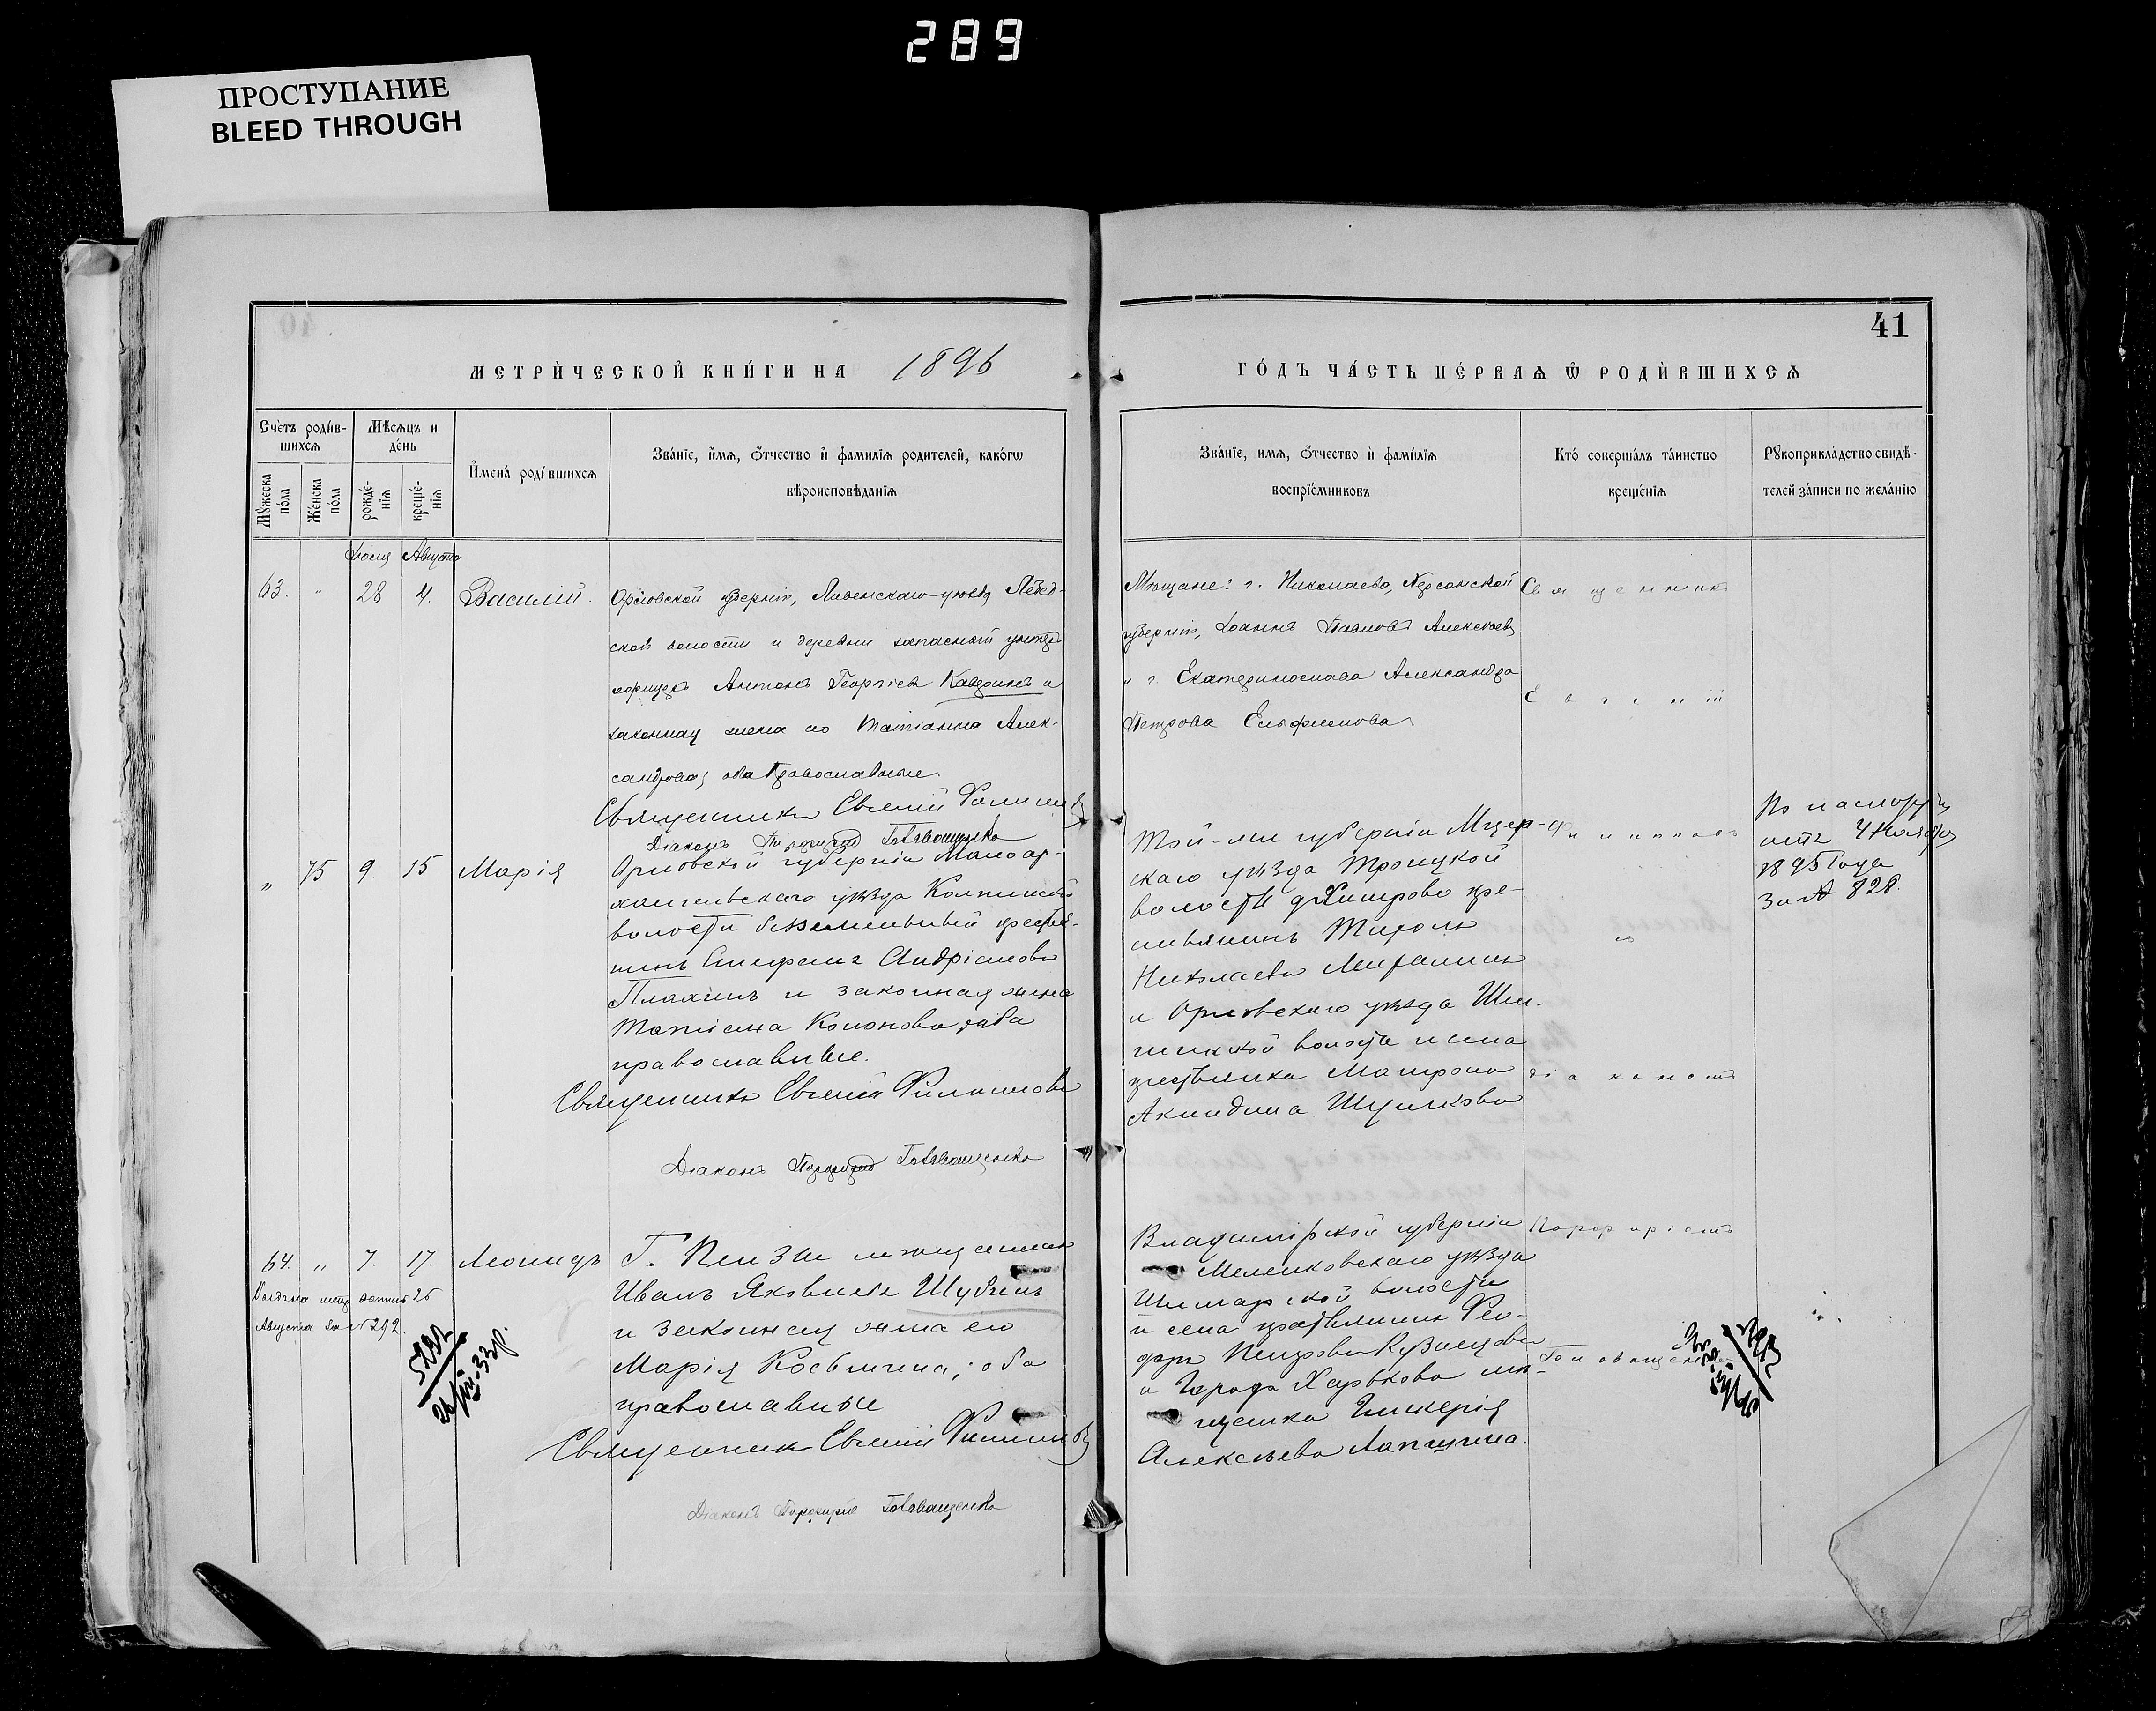 289
ПРОСТУПАНИЕ
BLEED THROUGH
41
МЕТРИ́ЧЕСКОЙ КНИ́ГИ НА 1896
ГО́ДЪ ЧА́СТЬ ПЕ́РВАѦ Ѡ҆ РОДИ́ВШИХСѦ
Счетъ роди́в-
шихсѧ
Мꙋжеска по́ла
Же́нска по́ла
Мѣсѧцъ и де́нь
рожде́-нїѧ
креще́-нїѧ
Имена́ роди́вшихсѧ
Зва́нїе, и́мѧ, ѻ́тчество и фами́лїѧ родителей, како́гѡ
вѣроисповѣданїѧ
Зва́нїе, имѧ, ѻ́тчество и фами́лїѧ
воспрїе́мниковъ
Кто́ соверша́лъ та́инство
креще́нїѧ
Рꙋкоприкла́дство свидѣ-
телей за́писи по жела́нїю
Іюля Августа
63. " 28 4. Василій.
Орловской губерніи, Ливенскаго уѣзда,
ской волости и деревни запасный унтеръ
офицеръ Антонъ Георгіевъ и
законная жена его Татіанна Алек-
сандрова, оба Православные.
Священникъ Евгеній Филипповъ
Діаконъ Порфирій Головащенко
Мѣщане: г. Николаева, Херсонской
губерніи, Іоаннъ Павловъ Алексѣевъ
и г. Екатеринослава Александра
Петрова
Священникъ
Евгеній
Филипповъ
" 75 9. 15 Марія
Орловской губерніи Малоар-
хангельскаго уѣзда
волости безземельный крестья-
нинъ Андріановъ
Плахинъ и законная жена
Татіана Кононова, оба
православные.
Священникъ Евгеній Филипповъ
Діаконъ Порфирій Головащенко
Той-же губерніи Мцен-
скаго уѣзда Троицкой
волости кре-
Николаевъ
и Орловскаго уѣзда
волости и села
крестьянка Матрона
Акиндина
и
діаконъ
По паспорту
отъ 4 Ноября
1895 Года
За № 828.
64. " 7. 17. Леонидъ
Августа за № 292.
Г. Пензы мѣщанинъ
Иванъ Яковлевъ Шубинъ
и законная жена его
Марія Косьмина; оба
православные
Священникъ Евгеній Филипповъ
Діаконъ Порфирій Головащенко
Владимірской губерніи
Меленковскаго уѣзда
волости
и села крестьянинъ Фео-
доръ Петровъ Кузнецовъ
и Города Харькова мѣ-
щанка Гликерія
Алексѣева Лапшина.
Порфирій
Головащенко